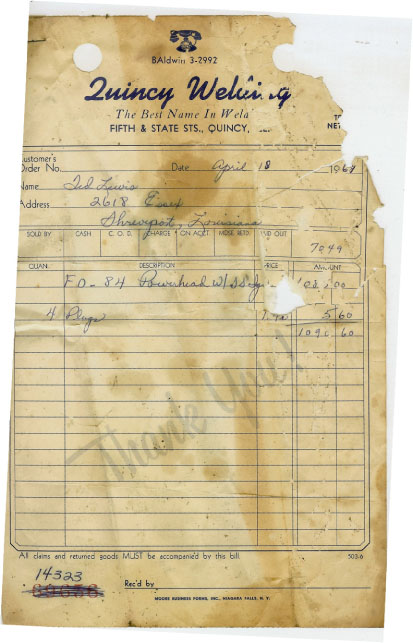 BAldwin 3-2992
Quincy Wel
The Best Name In Wel
FIFTH & STATE STS., QUINCY,
NET
ustomer's
Order No.
Date April 18 196
Name Ted Lewis
Address 2618 Essex
Shreveport, Louisiana
SOLD BY CASH C. O. D. CHARGE ON ACCT. MDSE. RETD. OUT
7049
QUAN. DESCRIPTION PRICE AMOUNT
FD-84 Powerhead W/
4 Plugs 5 60
109 60
Thank You!
All claims and returned goods MUST be accompanied by this bill. 503-6
14323
Rec'd by
MOORE BUSINESS FORMS, INC., NIAGARA FALLS, N. Y.